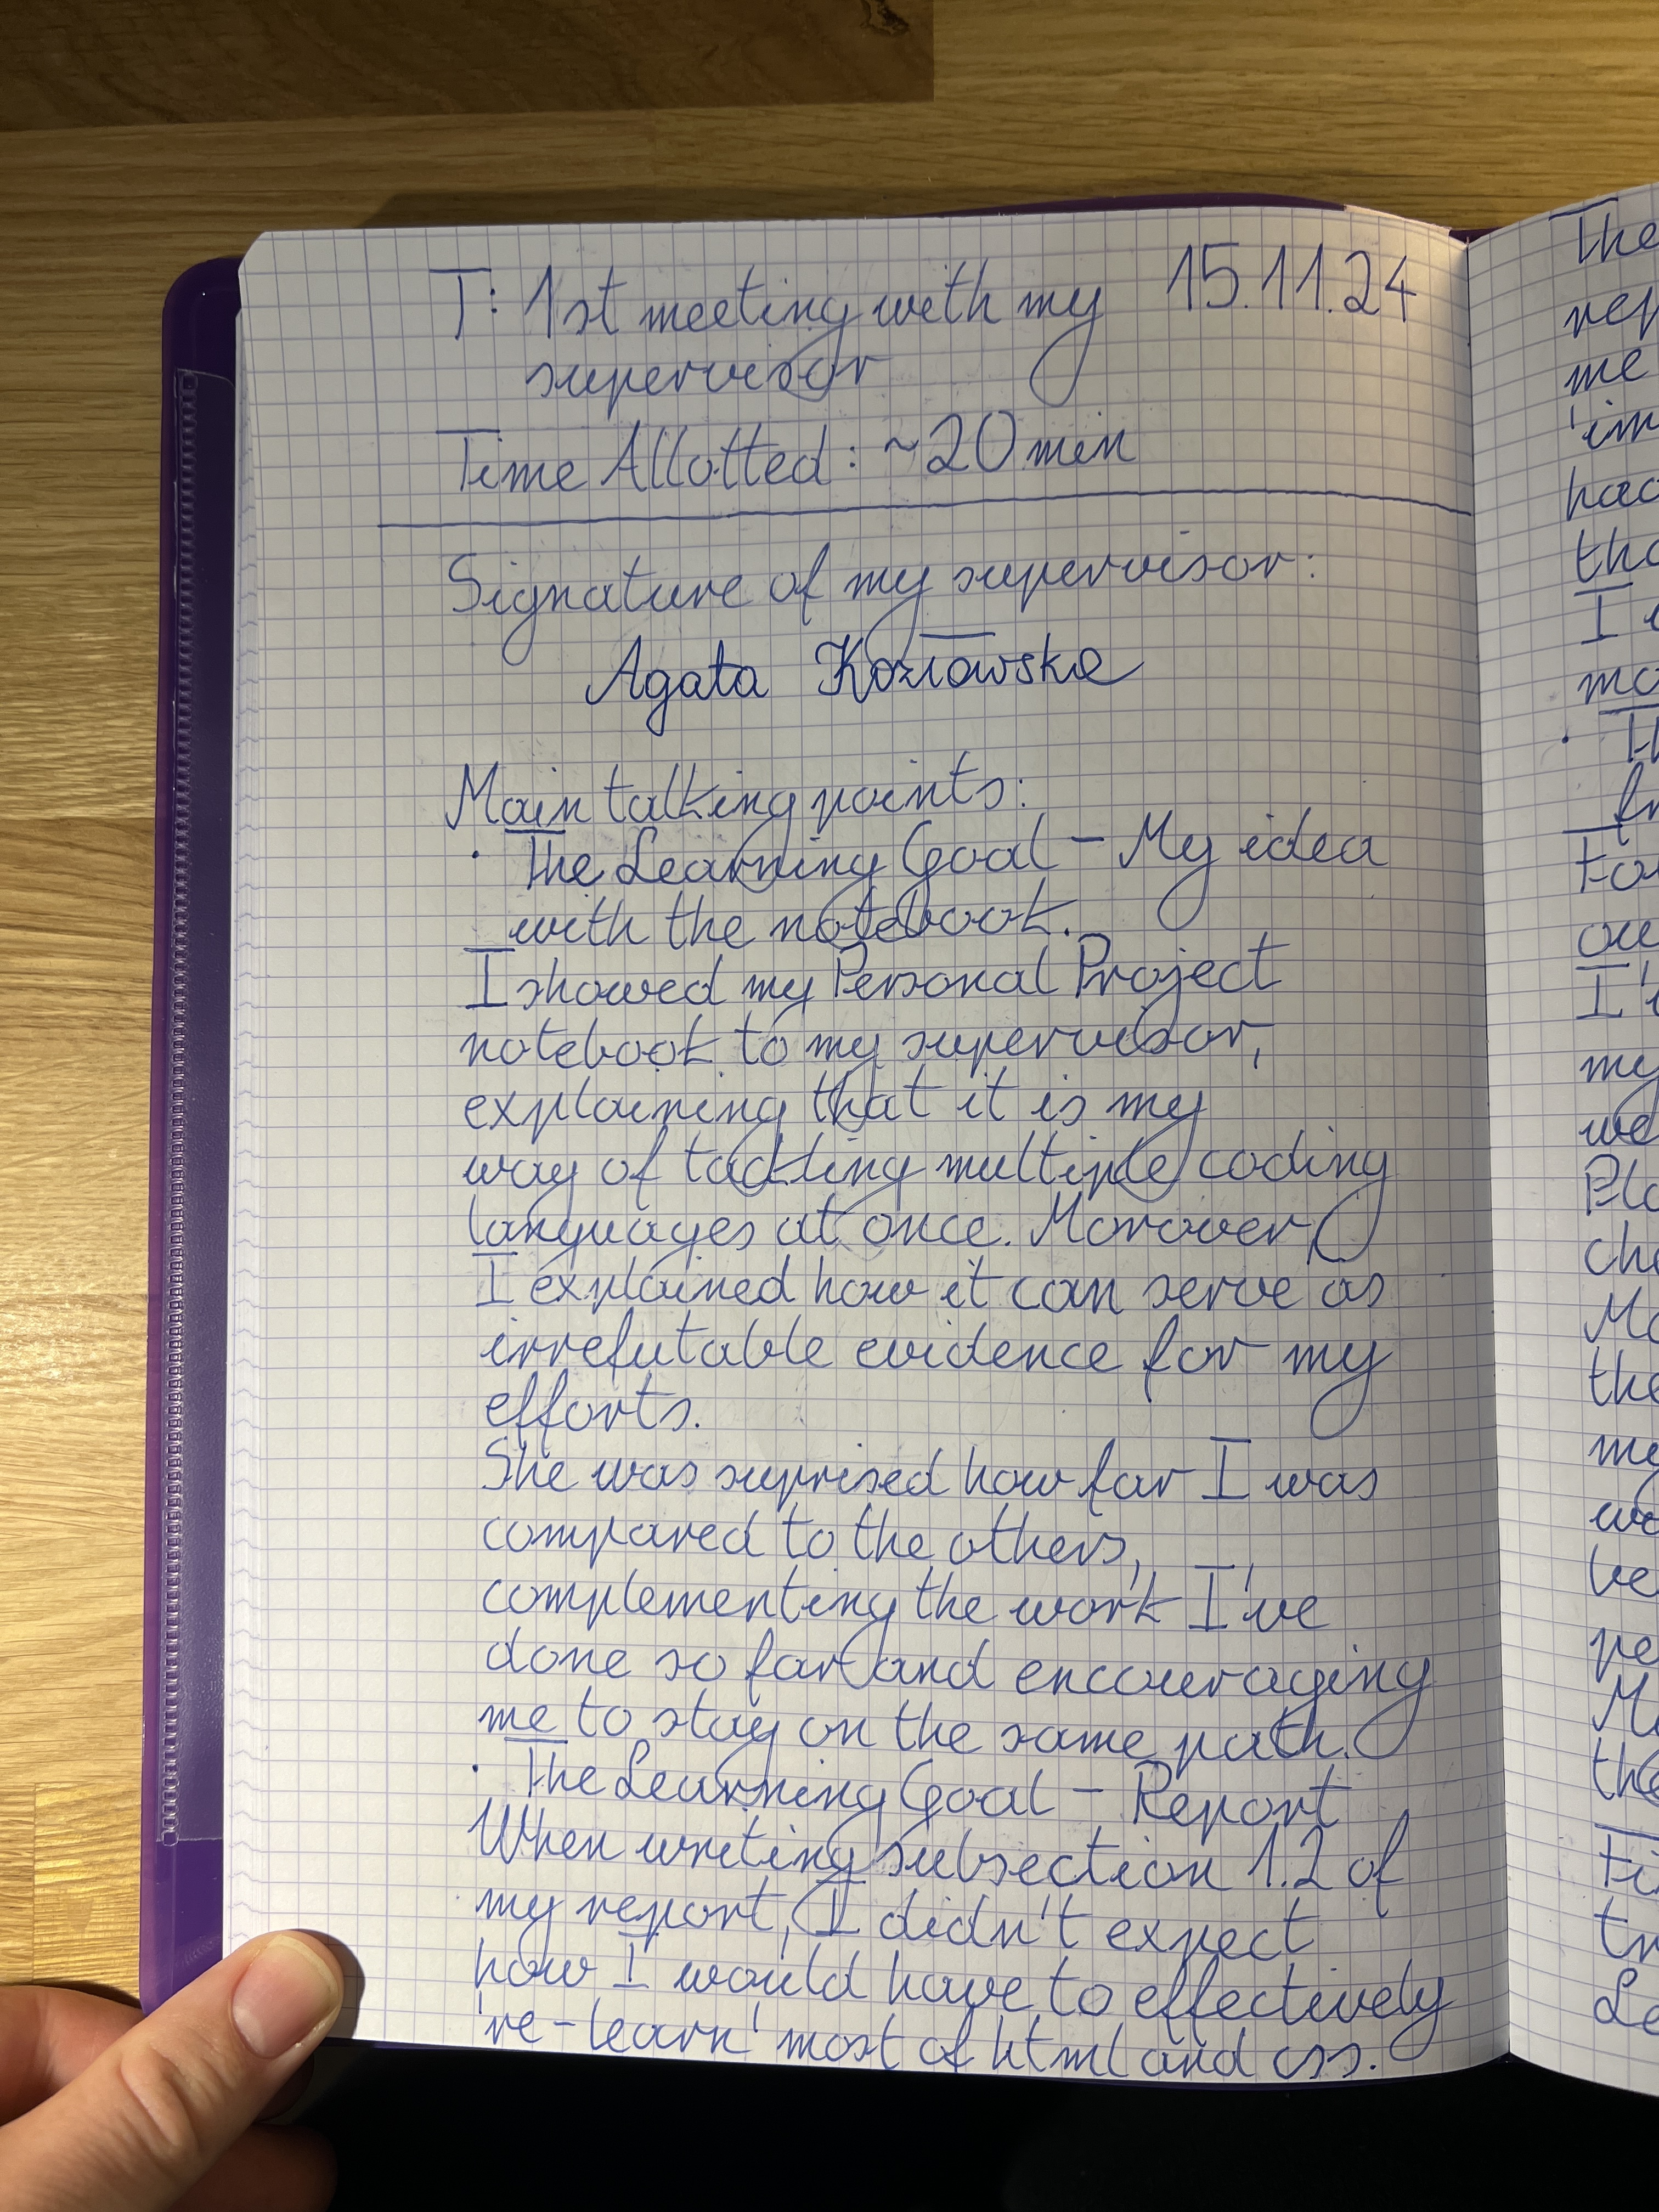 T: 1st meeting with my 15.11.24
supervisor
Time Allotted: ~20 min
Signature of my supervisor:
Agata Kozłowska
Main talking points:
· The Learning Goal - My idea
with the notebook.
I showed my Personal Project
notebook to my supervisor,
explaining that it is my
way of tackling multiple coding
languages at once. Morover,
I explained how it can serve as
irrefutable evidence for my
efforts.
She was suprised how far I was
compared to the others,
complementing the work I've
done so far and encouraging
me to stay on the same path.
· The Learning Goal - Report
When writing subsection 1.2 of
my report, I didn't expect
how I would have to effectively
're-learn' most of html and css.
The
me
I
my
the
my